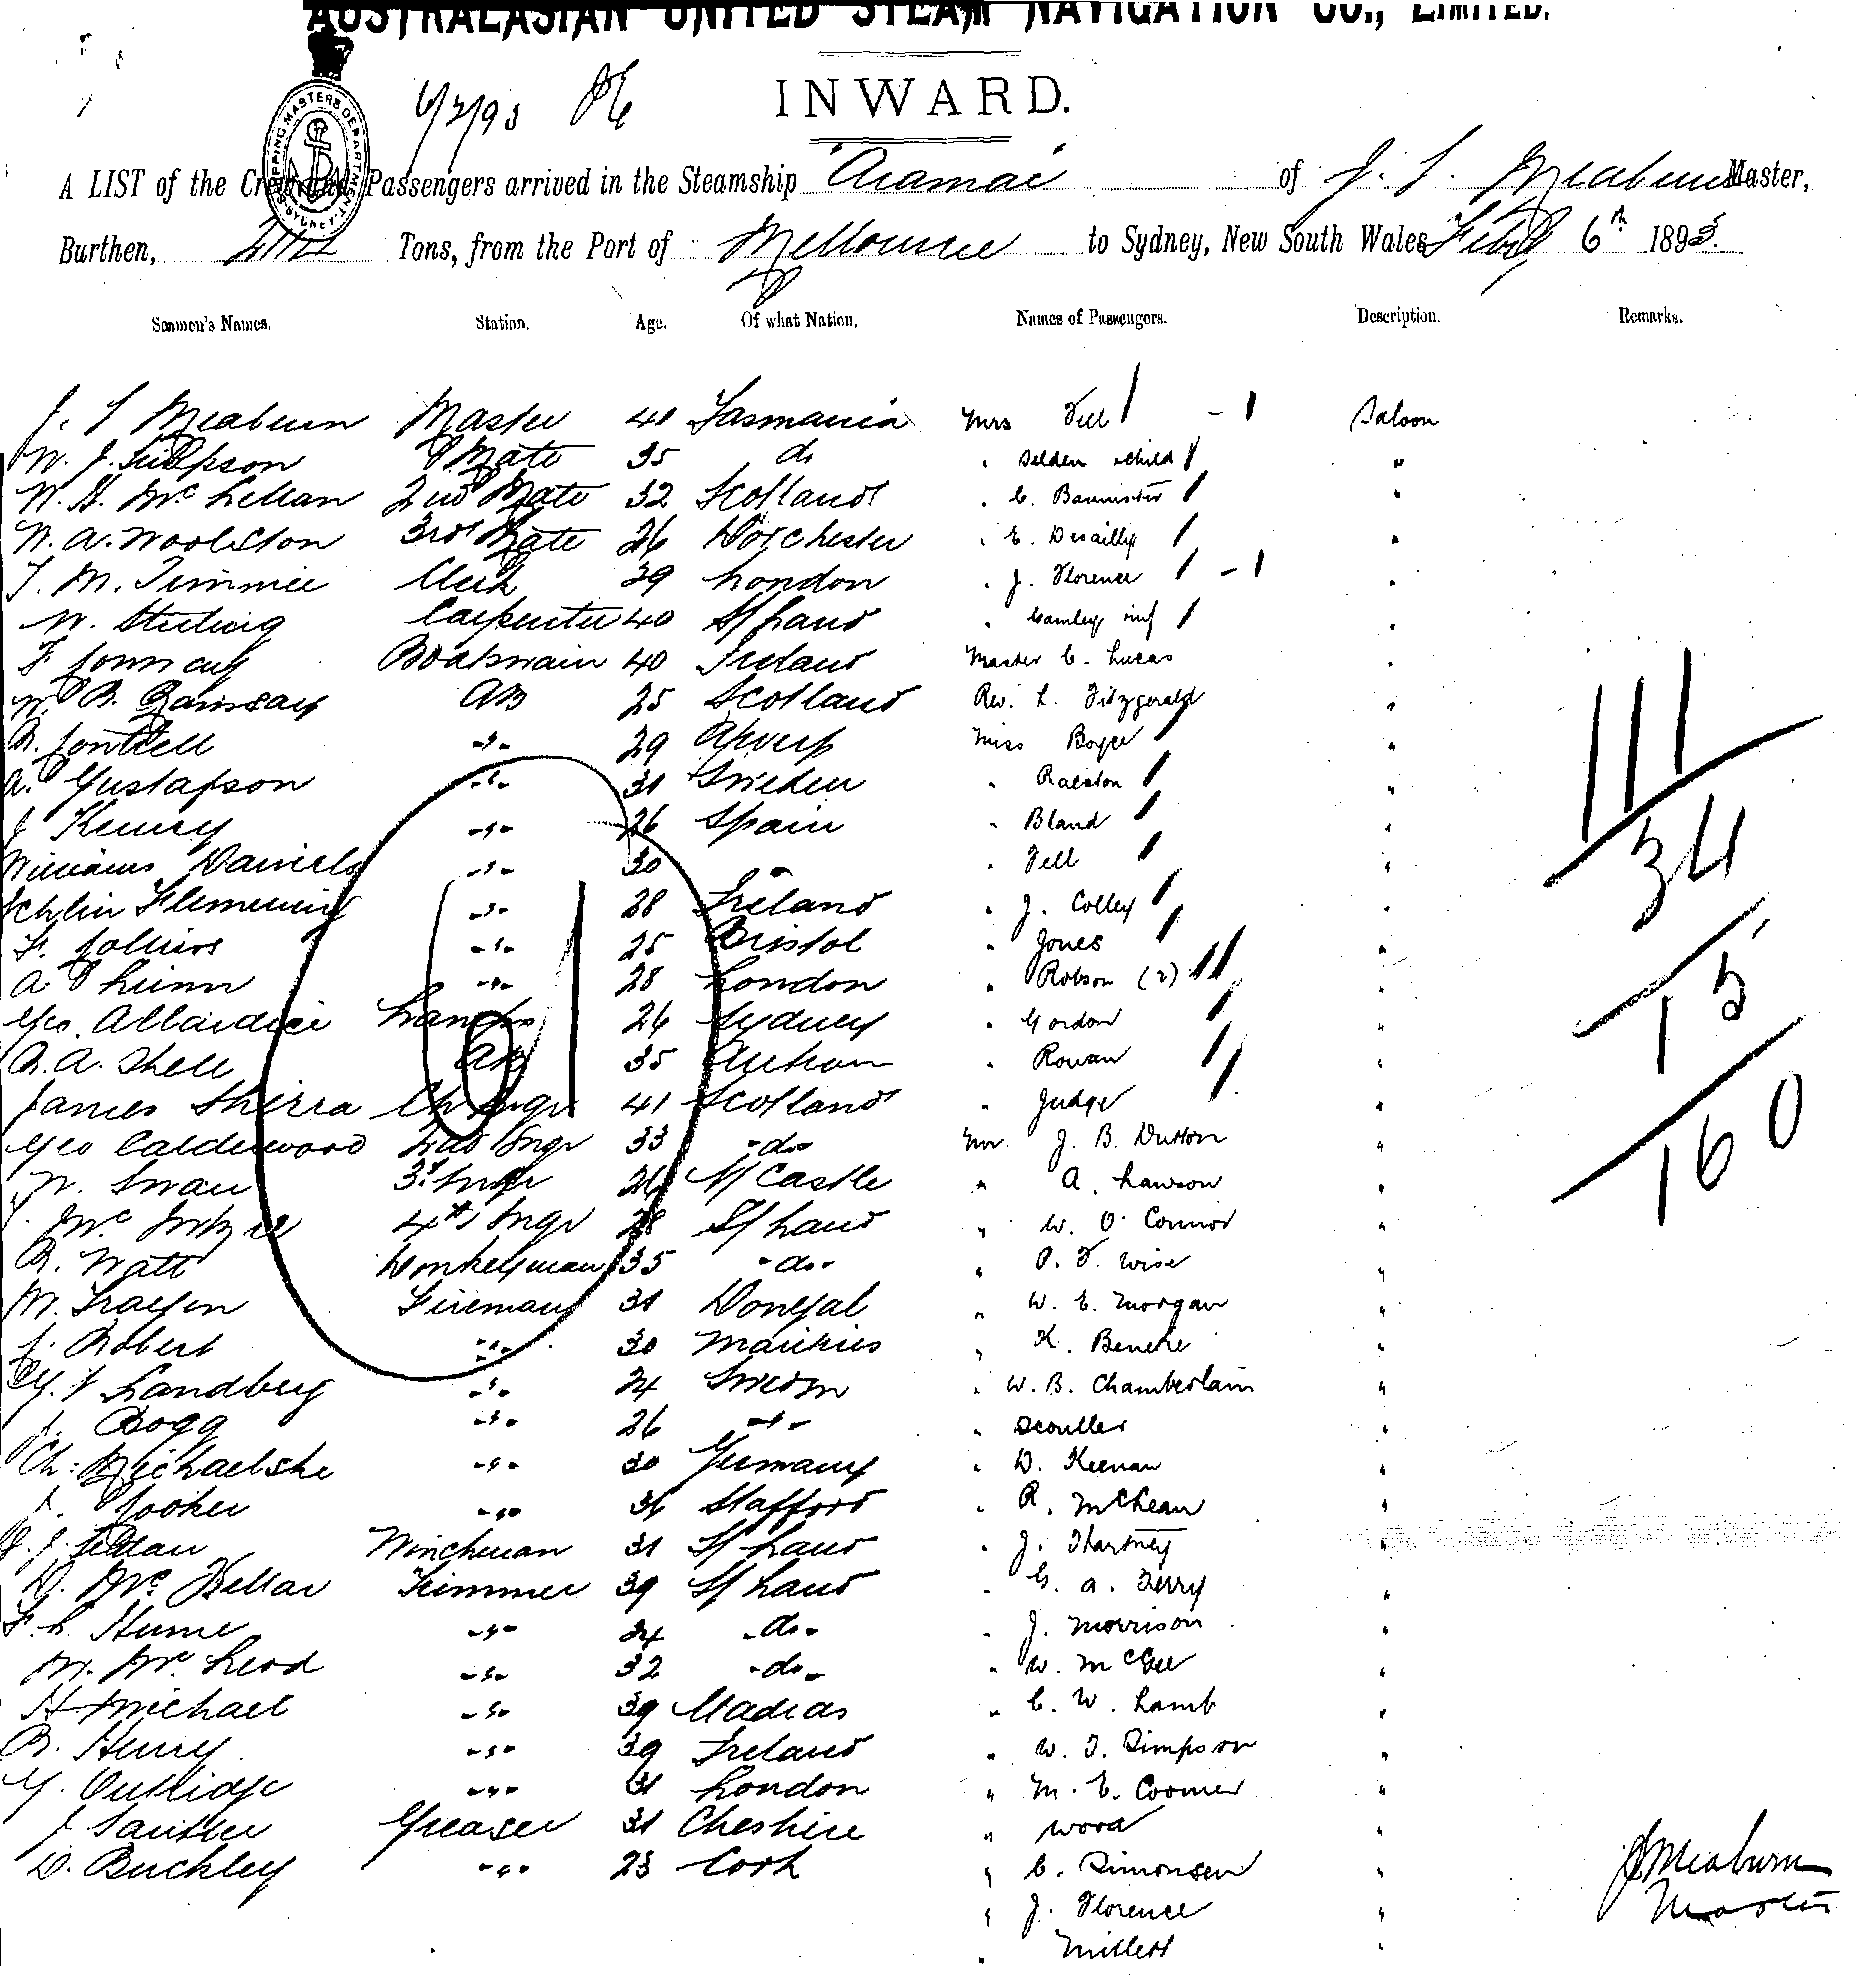 AUSTRALASIAN UNITED STEAM NAVIGATION CO., LIMITED.
6/2/93
INWARD.
A LIST of the Crew and Passengers arrived in the Steamship "Aramac" of J. S. Meaburn Master,
Burthen, Tons, from the Port of Melbourne to Sydney, New South Wales 6th 1893.
Seamen's Names. Station. Age. Of what Nation. Names of Passengers. Description. Remarks.
J. S Meaburn Master 41 Tasmania Mrs Fell 1 - 1 Saloon
W. J. Simpson Mate 35 do " Selden child 1 "
Mc Lellan 2nd Mate 32 Scotland " C. Bannister 1 "
W. A. Woolston 3rd Mate 26 Dorchester " E. Desailly 1 "
T. M. Timmie Clerk 39 London " J. Florence 1 - 1 "
W. Stirling Carpenter 40 S/land " inf 1 "
F Boatswain 40 Ireland Master C. Lucas "
W. B. Ramsay AB 25 Scotland Rev. L. Fitzgerald "
-"- 29 Miss Boyce "
A. Gustafson -"- 31 Sweden " Ralston 1 "
J -"- 26 Spain " Bland 1 "
Williams Daniels -"- 30 " " Fell 1 "
Fleming -"- 28 Ireland " J. Colley 1 "
F. Collins -"- 25 Bristol " Jones 1 "
A -"- 28 London " Robson (2) 11 "
Geo. Allardice Lamps 26 Sydney " Gordon 1 "
A. Shell AB 35 " Rowan 1 1 "
James Shirra Ch Engr 41 Scotland " Judge "
Geo Calderwood 2nd Engr 33 -do- Mr. J. B. Dutton "
W. Swan 3rd Engr 26 N/Castle " A. Lawson "
4th Engr 28 S/land " W. O'Connor "
R. Watt Donkeyman 35 -do- " F. Wise "
M. Fireman 31 Donegal " W. E. Morgan "
Robert -"- 30 " K. Beneke "
Landberg -"- 24 Sweden " W. B. Chamberlain "
J. Bogg -"- 26 -"- " Scouller "
Ch: Michaelske -"- 30 Germany " D. Keenan "
J. Hooker -"- 34 Stafford " R. McLean "
Winchman 31 S/land " J. Hartney "
D. Mc Kellar Trimmer 39 S/land " G. A. Ferry "
F. L. Hume -"- 24 -do- " J. Morrison "
M. Mc. Leod -"- 32 -do- " W. McGee "
H Michael -"- 39 Madras " C. W. Lamb "
B. Henry -"- 39 Ireland " W. T. Simpson "
G. Outridge -"- 31 London " M. C. Coomer "
J Greaser 31 Cheshire " Wood "
D. Buckley -"- 23 Cork " C. Simonsen "
" J. Florence "
" Millett "
111
34
15
160
J S Meaburn
Master